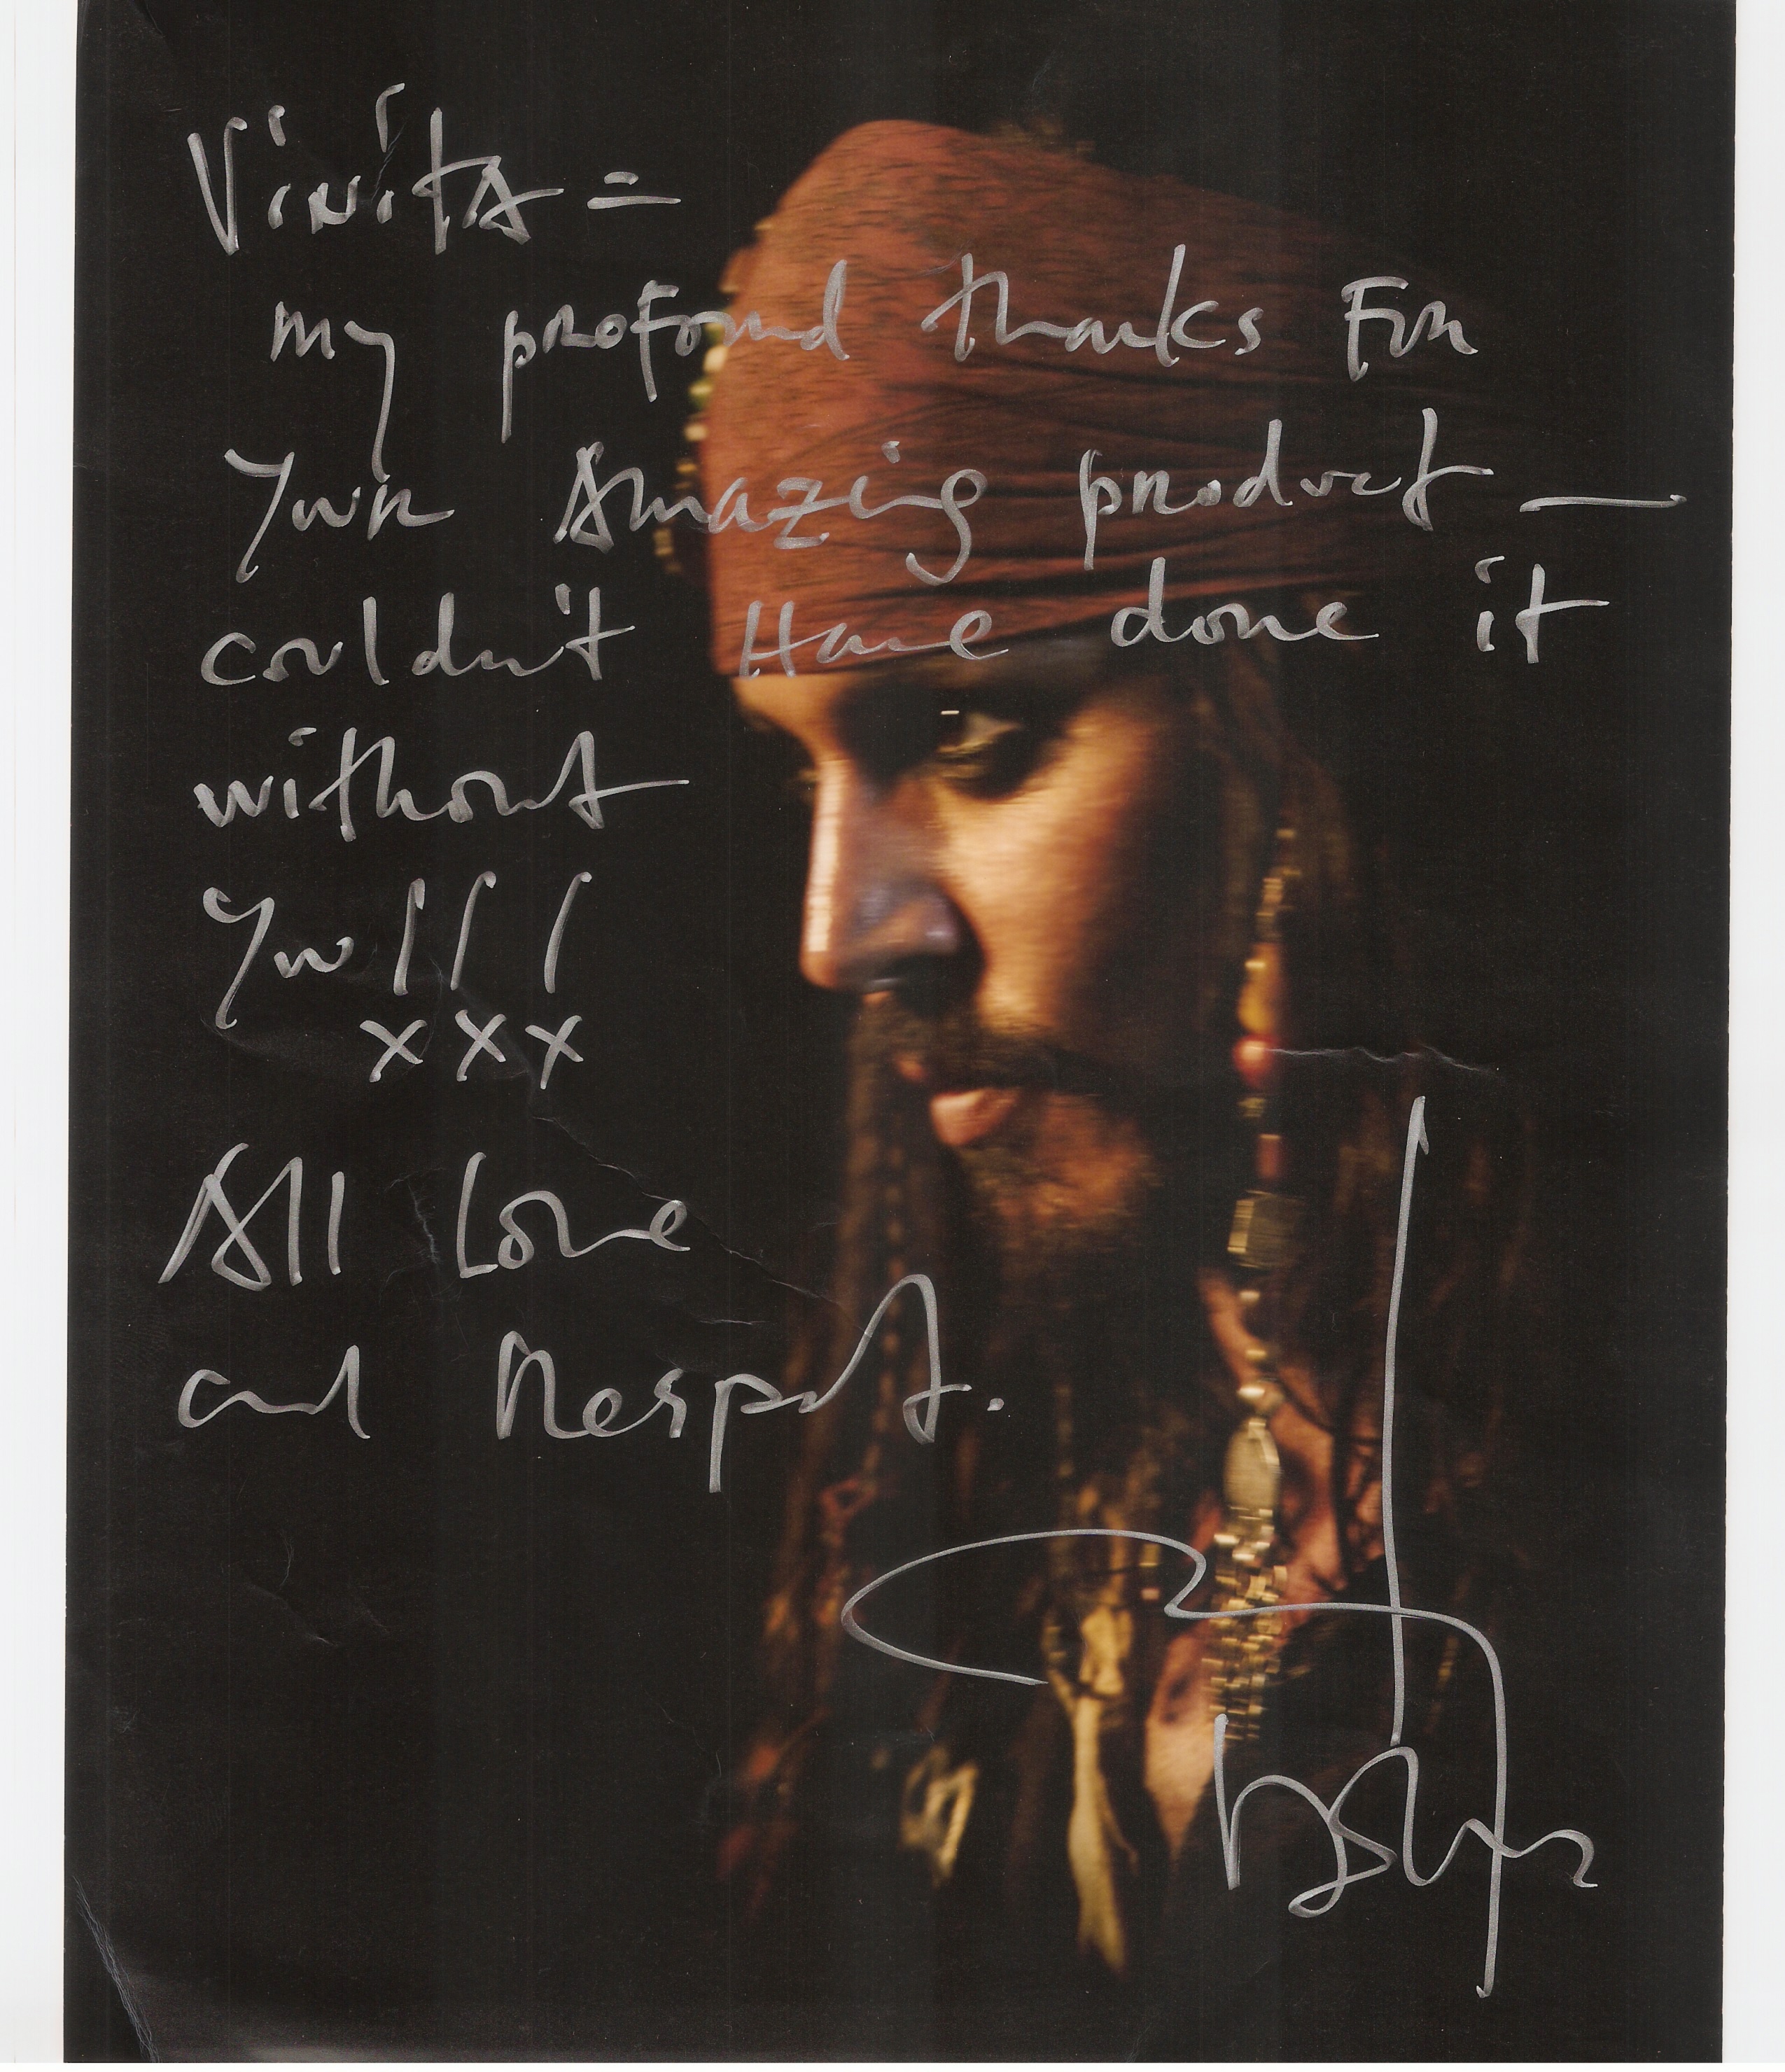 Vinita =
my profound thanks For
Your Amazing product —
couldn't Have done it
without
You!!!
xxx
All Love
and Respect.